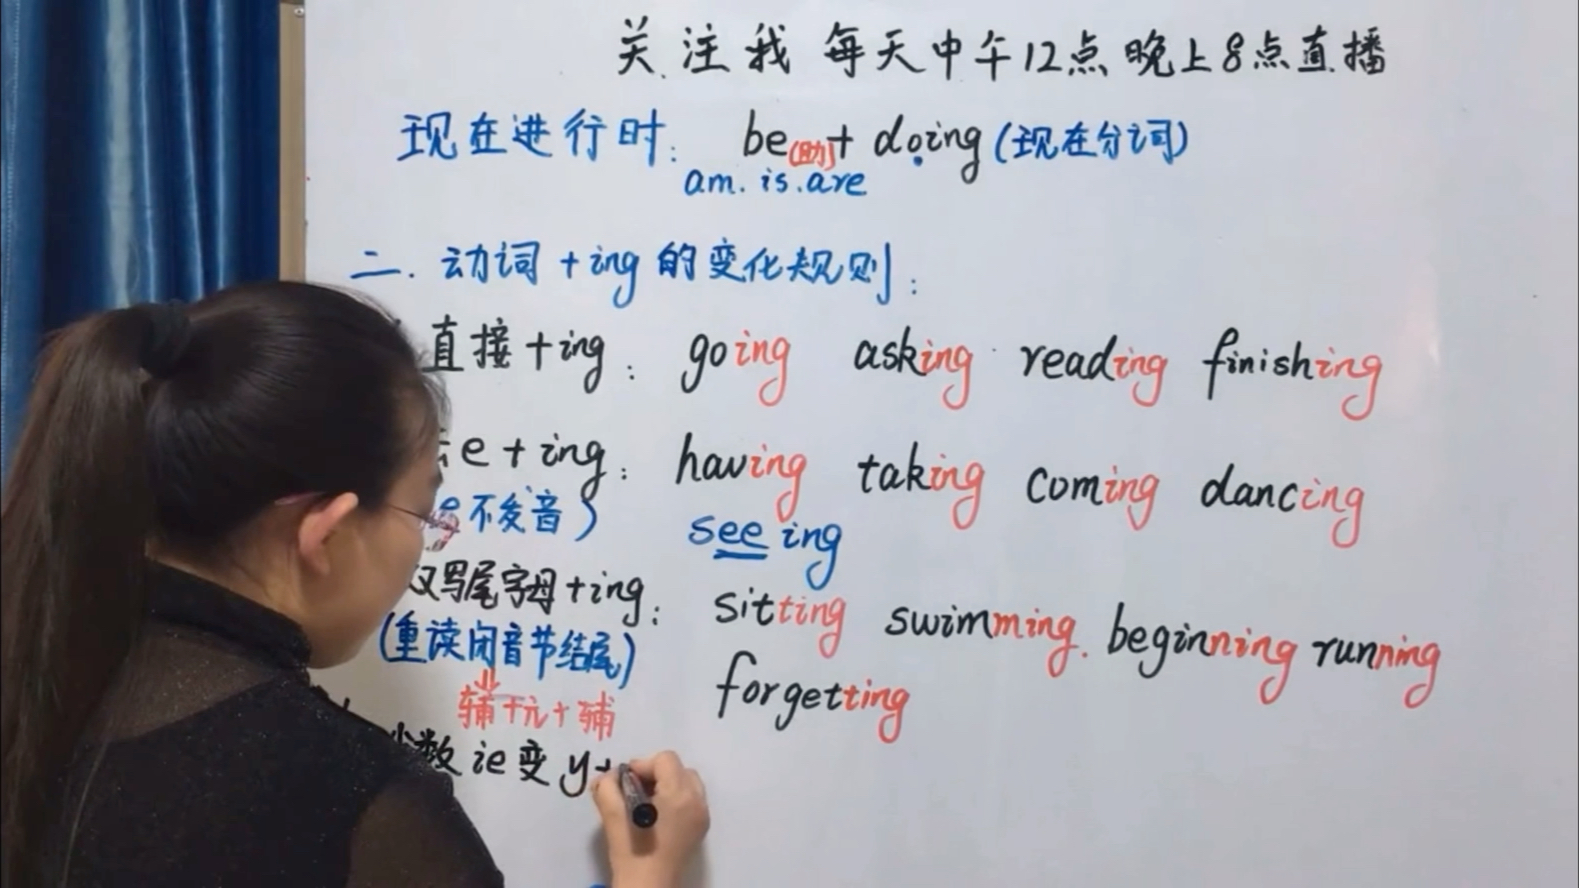 关注我 每天中午12点 晚上8点直播
现在进行时: be(助)+ doing (现在分词)
am. is. are
二. 动词 +ing 的变化规则:
直接 +ing: going asking reading finishing
去e + ing: having taking coming dancing
e不发音) seeing
双写尾字母+ing: sitting swimming. beginning running
(重读闭音节结尾)
forgetting
辅+元+辅
少数 ie 变 y+